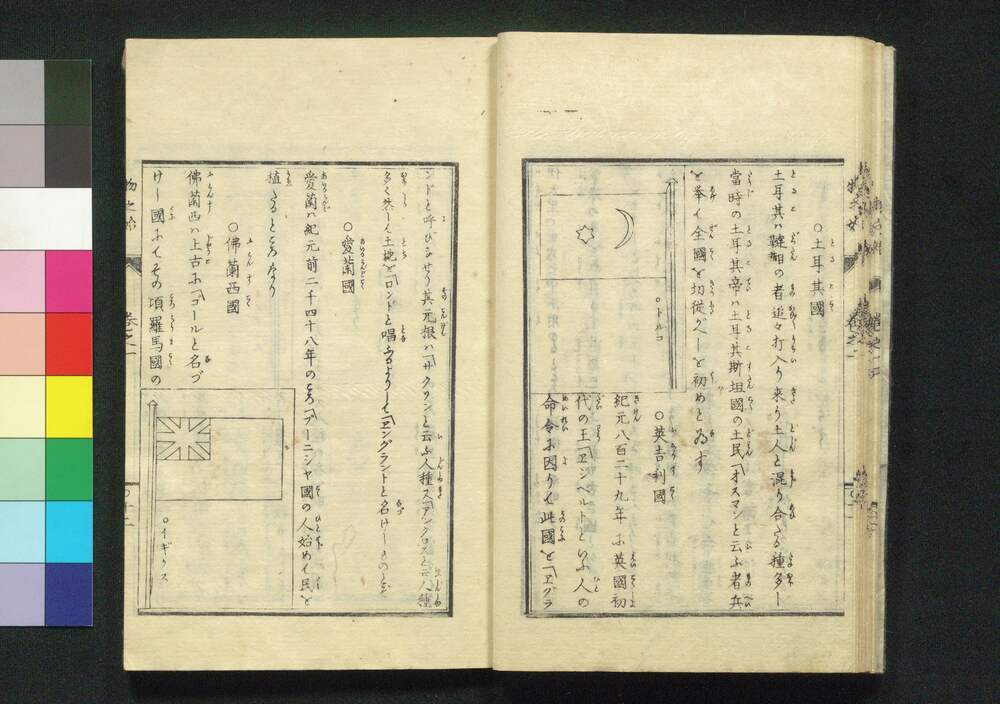 ○土耳其國
土耳其ハ韃靼の者追々打入り来り土人と混り合たる種多し
當時の土耳其帝ハ土耳其斯坦國の土民「オスマンと云ふ者兵
を挙て全國を切従へしを初めとゐす
○トルコ
○英吉利國
紀元八百二十九年に英國初
代の王「エンベルトといふ人の
命令に因りて此國を「エグラ
ンドと呼びなせり其元根ハ「サクソンと云ふ人種ス「アングロスと云人種
多く然して土地を「ロンドと唱ふるよりして「エングラントと名けしものとぞ
○愛蘭國
愛蘭ハ紀元前二千四十八年のころ「フーニシャ國の人始めて民を
植たるところなり
○佛蘭西國
佛蘭西ハ上古に「ゴールと名づ
けし國にてその頃羅馬國の
○イギリス
物之始
巻之一